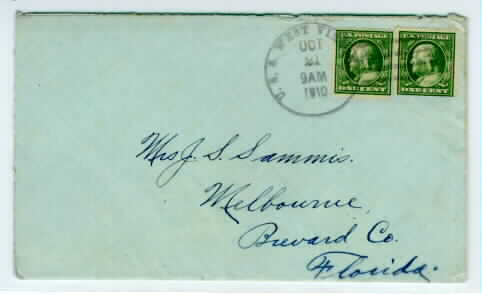 U.S.S. WEST VI
OCT
21
9AM
1910
U.S. POSTAGE
ONE CENT
U.S. POSTAGE
ONE CENT
Mrs J. S. Sammis.
Melbourne,
Brevard Co.
Florida.